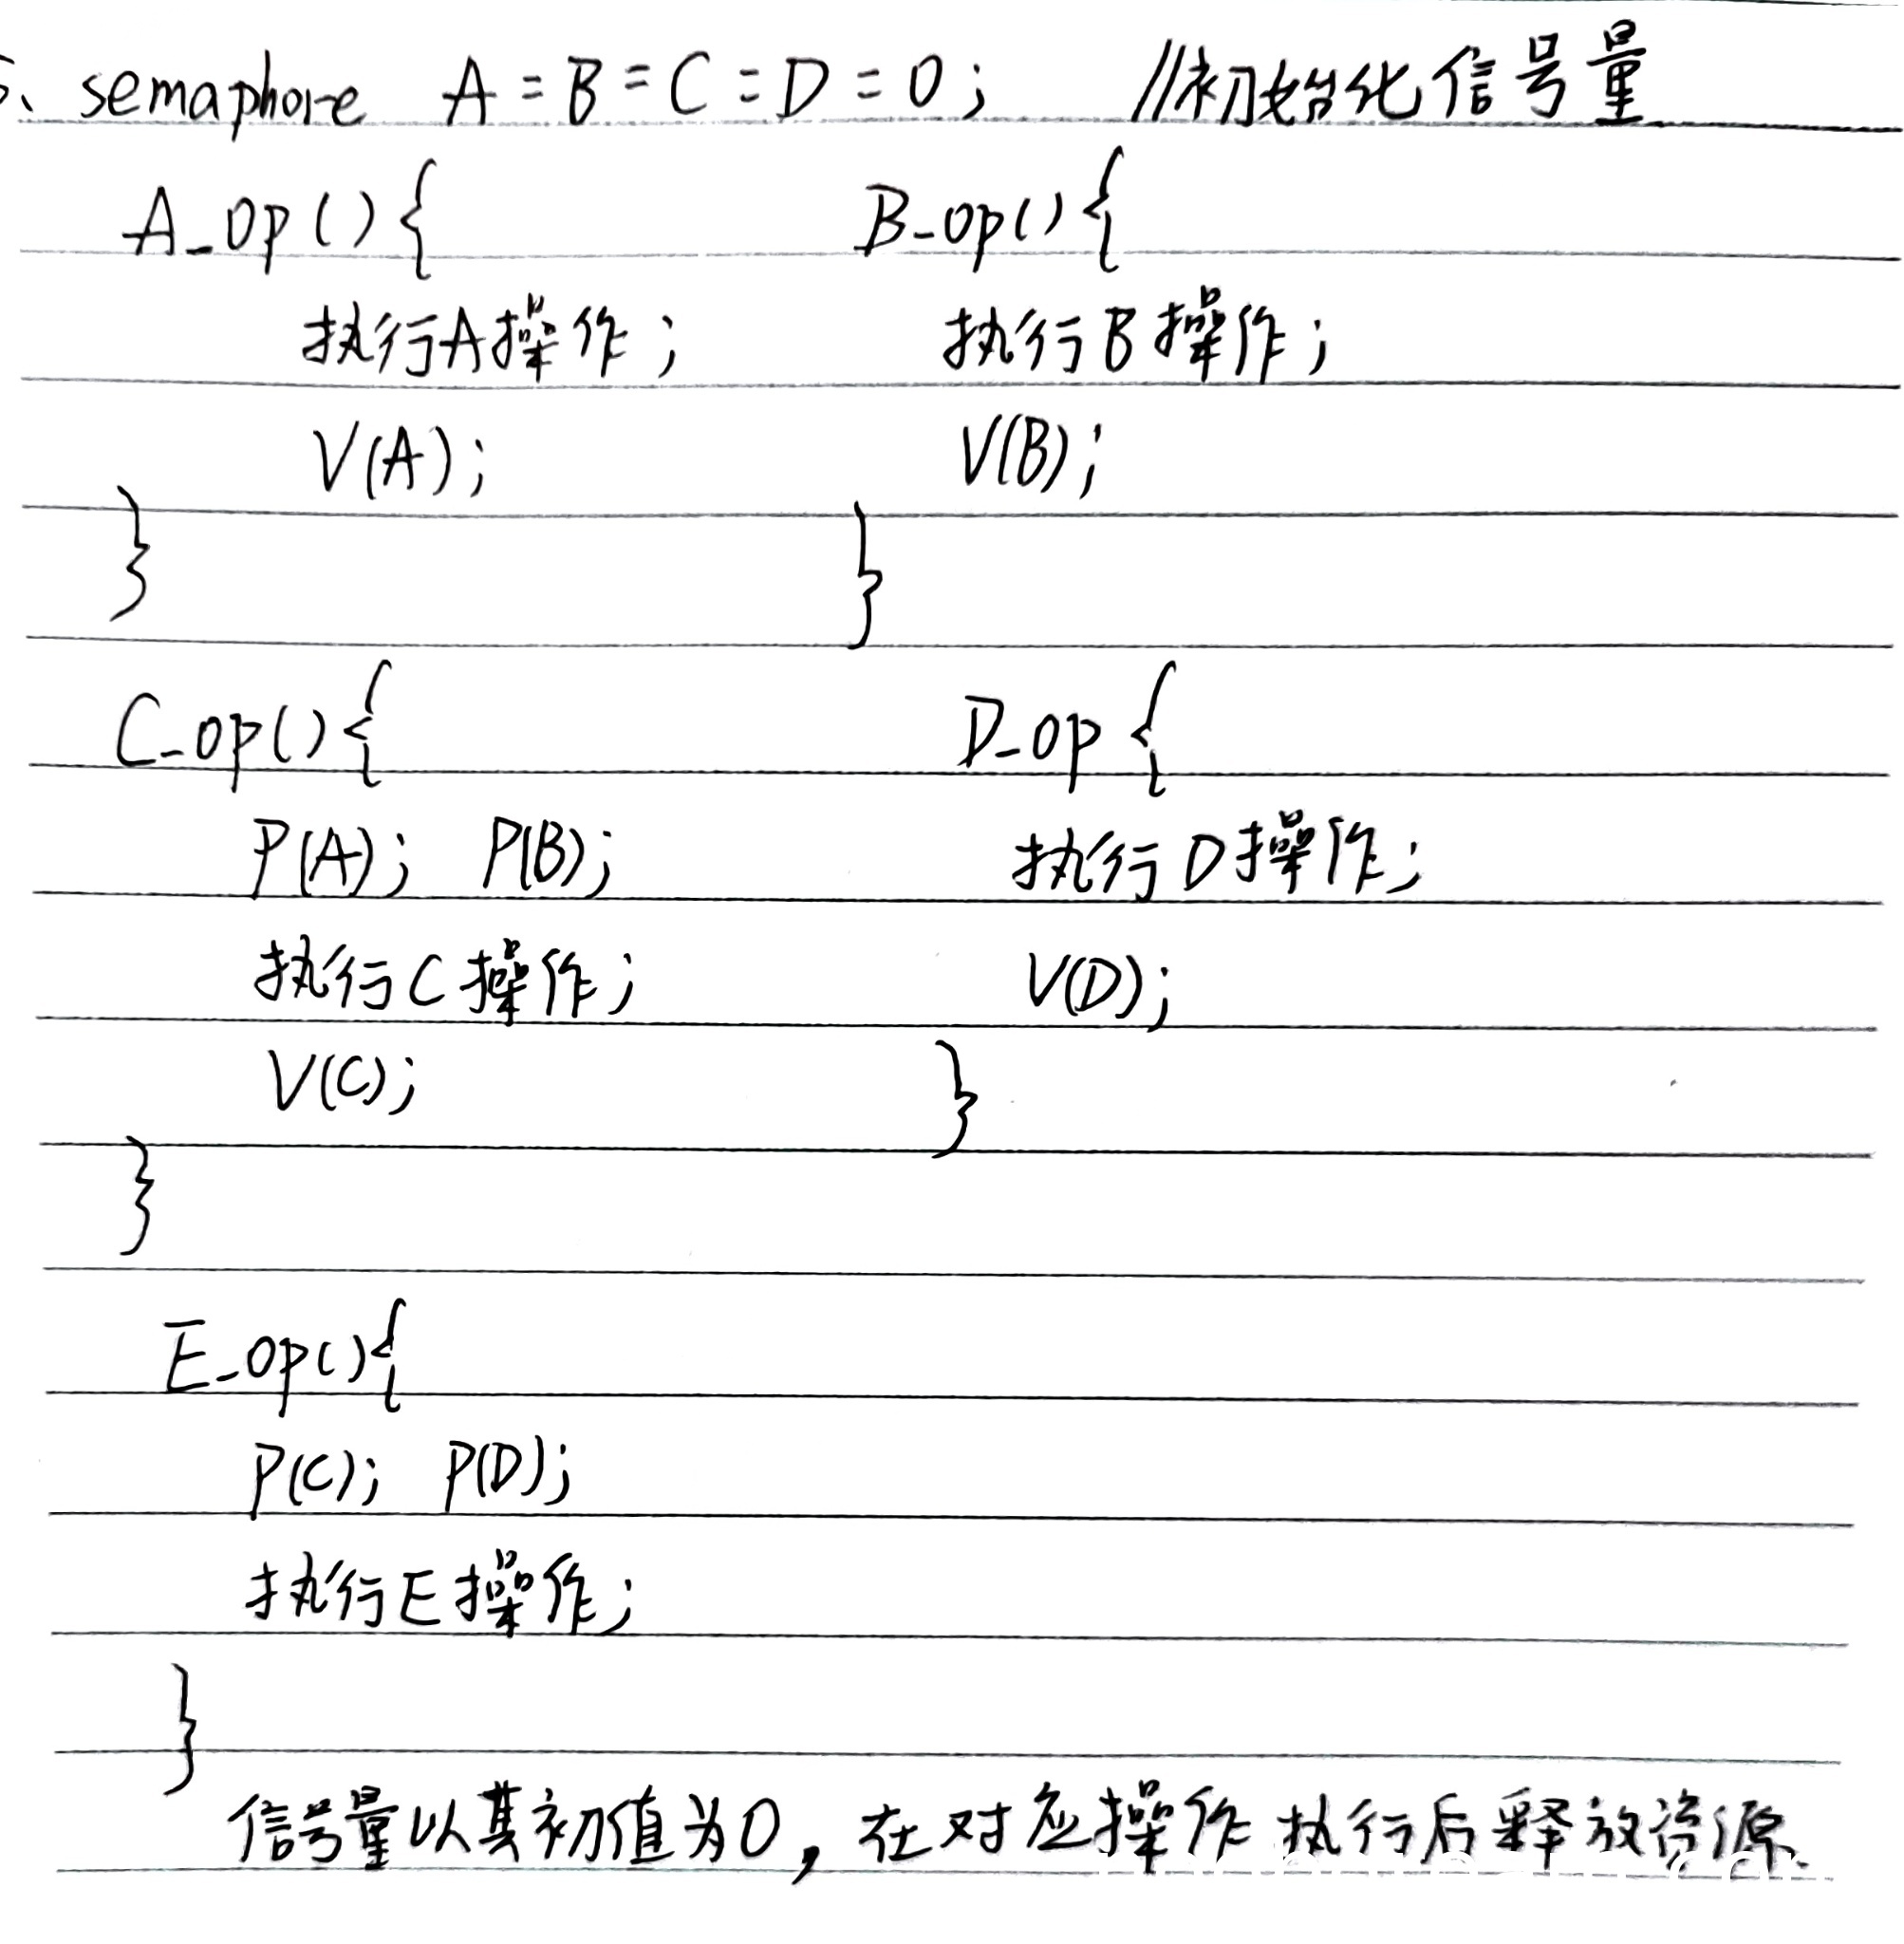 、semaphore A = B = C = D = 0; //初始化信号量
A_op(){ B_op(){
执行A操作; 执行B操作;
V(A); V(B);
} }
C_op(){ D_op {
P(A); P(B); 执行D操作;
执行C操作; V(D);
V(C); }
}
E_op(){
P(C); P(D);
执行E操作;
}
信号量以其初值为0,在对应操作执行后释放资源.